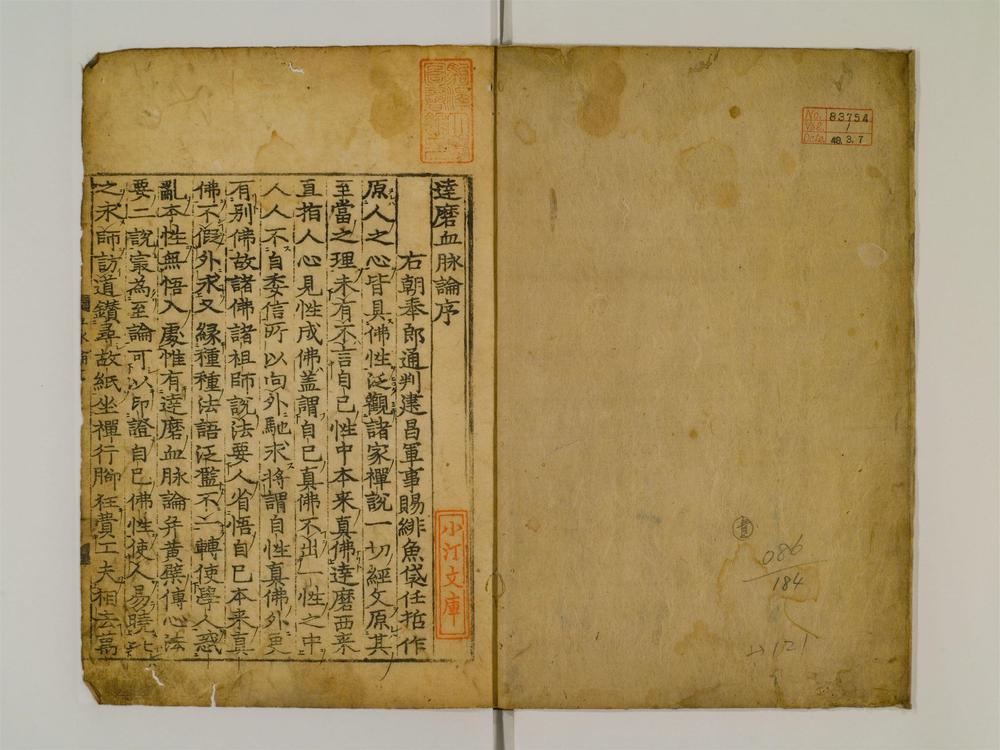 達磨血脉論序
右朝奉郎通判建昌軍事賜緋魚袋任哲作
原人之心皆具佛性泛觀諸家禪說一切經文原其
至當之理未有不言自己性中本来真佛達磨西来
直指人心見性成佛盖謂自己真佛不出一性之中
人人不自委信所以向外馳求将謂自性真佛外更
有别佛故諸佛諸祖師說法要人省悟自己本来真
佛不假外求又緣種種法語泛濫不一轉使學人惑
亂本性無悟入處惟有達磨血脉論并黃蘗傳心法
要二說冣為至論可以印證自己佛性使人易曉比
之求師訪道鑽尋故紙坐禪行脚狂費工夫相去萬
小汀文庫
No. 83754
Vol. 1
Date 48.3.7
086
184
121